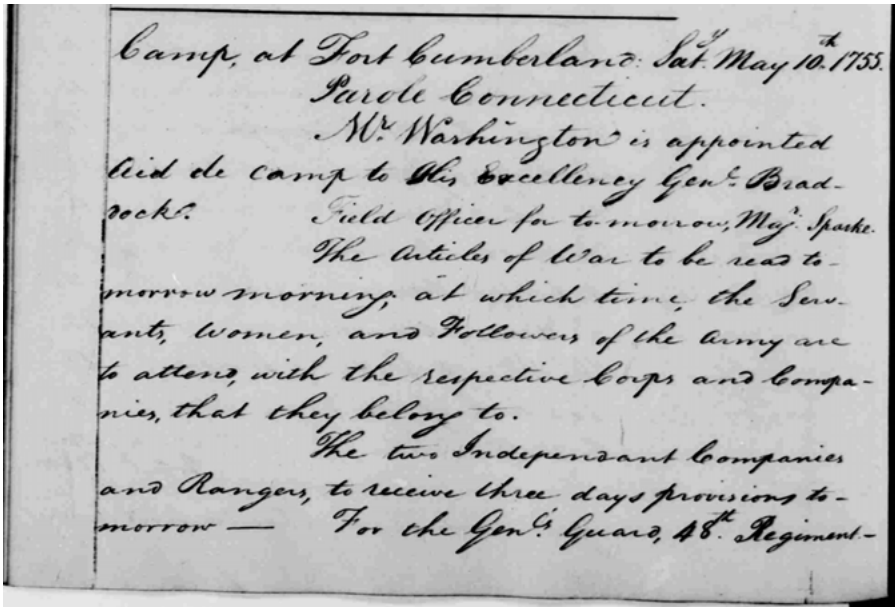 Camp, at Fort Cumberland: Saty. May 10th. 1755.
Parole Connecticut.
Mr. Washington is appointed
Aid de camp to His Excellency Genl. Brad-
dock. Field Officer for to-morrow, Majr. Sparke.
The Articles of War to be read to-
morrow morning; at which time, the Serv-
ants, Women, and Followers of the Army are
to attend, with the respective Corps and Compa-
nies, that they belong to.
The two Independant Companies
and Rangers, to receive three days provisions to-
morrow — For the Genl's. Guard, 48th. Regiment.-